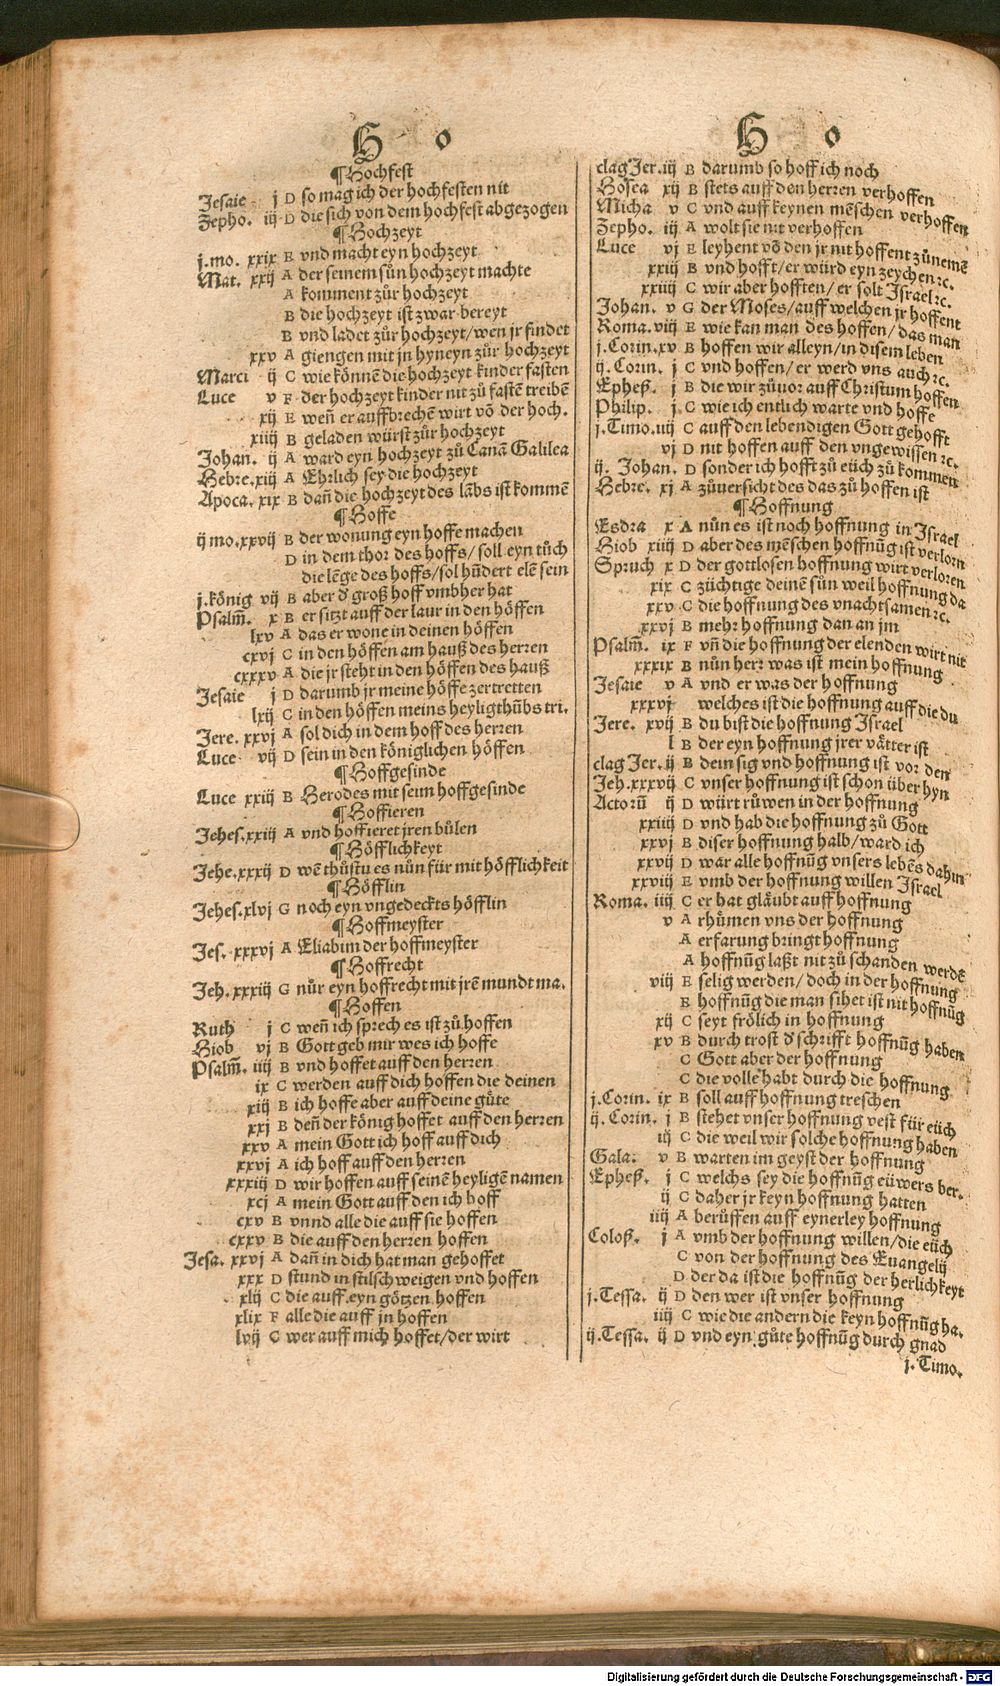 H o
¶Hochfest
Jesaie j D so mag ich der hochfesten nit
Zepho. iij D die sich von dem hochfest abgezogen
¶Hochzeyt
j.mo. xxix E vnd macht eyn hochzeyt
Mat. xxij A der seinem sůn hochzeyt machte
A komment zůr hochzeyt
B die hochzeyt ist zwar bereyt
B vnd ladet zůr hochzeyt/wen jr findet
xxv A giengen mit jn hyneyn zůr hochzeyt
Marci ij C wie könnē die hochzeyt kinder fasten
Luce v F der hochzeyt kinder nit zů fastē treibē
xij E weñ er auffbrechē wirt vō der hoch.
xiiij B geladen würst zůr hochzeyt
Johan. ij A ward eyn hochzeyt zů Cana Galilea
Hebre. xiij A Ehrlich sey die hochzeyt
Apoca. xix B dañ die hochzeyt des lābs ist kommē
¶Hoffe
ij mo. xxvij B der wonung eyn hoffe machen
D in dem thor des hoffs/soll eyn tůch
die lēge des hoffs/sol hūdert elē sein
j.könig vij B aber d̓ groß hoff vmbher hat
Psalm̄. x B er sitzt auff der laur in den höffen
lxv A das er wone in deinen höffen
cxvj C in den höffen am hauß des herren
cxxxv A die jr steht in den höffen des hauß
Jesaie j D darumb jr meine höffe zertretten
lxij C in den höffen meins heyligthūbs tri.
Jere. xxvj A sol dich in dem hoff des herren
Luce vij D sein in den königlichen höffen
¶Hoffgesinde
Luce xxiij B Herodes mit seim hoffgesinde
¶Hoffieren
Jehes. xxiij A vnd hoffieret jren bůlen
¶Höfflichkeyt
Jehe. xxxij D wē thůstu es nůn für mit höfflichkeit
¶Höfflin
Jehes. xlvj G noch eyn vngedeckts höfflin
¶Hoffmeyster
Jes. xxxvj A Eliabim der hoffmeyster
¶Hoffrecht
Jeh. xxxiij G nůr eyn hoffrecht mit jrē mundt ma.
¶Hoffen
Ruth j C weñ ich sprech es ist zů hoffen
Hiob vj B Gott geb mir wes ich hoffe
Psalm̄. iiij B vnd hoffet auff den herren
ix C werden auff dich hoffen die deinen
xiij B ich hoffe aber auff deine gůte
xxj B deñ der könig hoffet auff den herren
xxv A mein Gott ich hoff auff dich
xxvj A ich hoff auff den herren
xxxiij D wir hoffen auff seinē heyligē namen
xcj A mein Gott auff den ich hoff
cxv B vnnd alle die auff sie hoffen
cxxv B die auff den herren hoffen
Jesa. xxvj A dañ in dich hat man gehoffet
xxx D stund in stilschweigen vnd hoffen
xlij C die auff eyn götzen hoffen
xlix F alle die auff jn hoffen
lvij C wer auff mich hoffet/der wirt
H o
clag Jer. iij B darumb so hoff ich noch
Hosea xij B stets auff den herren verhoffen
Micha v C vnd auff keynen mēschen verhoffen
Zepho. iij A wolt sie nit verhoffen
Luce vj E leyhent vō den jr nit hoffent zůnemē
xxiij B vnd hofft/er würd eyn zeychen ꝛc.
xxiiij C wir aber hofften/er solt Israel ꝛc.
Johan. v G der Moses/auff welchen jr hoffent
Roma. viij E wie kan man des hoffen/das man
j.Corin. xv B hoffen wir alleyn/in disem leben
ij.Corin. j C vnd hoffen/er werd vns auch ꝛc.
Epheß. j B die wir zůuor auff Christum hoffen
Philip. j C wie ich entlich warte vnd hoffe
j.Timo. iiij C auff den lebendigen Gott gehofft
vj D nit hoffen auff den vngewissen ꝛc.
ij. Johan. D sonder ich hofft zů eüch zů kommen
Hebre. xj A zůuersicht des das zů hoffen ist
¶Hoffnung
Esdra x A nůn es ist noch hoffnung in Israel
Hiob xiiij D aber des mēschen hoffnūg ist verlorn
Spruch x D der gottlosen hoffnung wirt verloren
xix C züchtige deinē sůn weil hoffnung da
xxv C die hoffnung des vnachtsamen ꝛc.
xxvj B mehr hoffnung dan an jm
Psalm̄. ix F vñ die hoffnung der elenden wirt nit
xxxix B nůn herr was ist mein hoffnung
Jesaie v A vnd er was der hoffnung
xxxvj welches ist die hoffnung auff die du
Jere. xvij B du bist die hoffnung Israel
l B der eyn hoffnung jrer vätter ist
clag Jer. ij B dein sig vnd hoffnung ist vor den
Jeh. xxxvij C vnser hoffnung ist schon über hyn
Actorū ij D würt růwen in der hoffnung
xxiiij D vnd hab die hoffnung zů Gott
xxvj B diser hoffnung halb/ward ich
xxvij D war alle hoffnūg vnsers lebēs dahin
xxviij E vmb der hoffnung willen Israel
Roma. iiij C er hat gläubt auff hoffnung
v A rhůmen vns der hoffnung
A erfarung bringt hoffnung
A hoffnūg laßt nit zů schanden werdē
viij E selig werden/doch in der hoffnung
E hoffnūg die man sihet ist nit hoffnūg
xij C seyt frölich in hoffnung
xv B durch trost d̓ schrifft hoffnūg haben
C Gott aber der hoffnung
C die volle habt durch die hoffnung
j.Corin. ix B soll auff hoffnung treschen
ij.Corin. j B stehet vnser hoffnung vest für eüch
iij C die weil wir solche hoffnung haben
Gala. v B warten im geyst der hoffnung
Epheß. j C welchs sey die hoffnūg eüwers ber.
ij C daher jr keyn hoffnung hatten
iiij A berůffen auff eynerley hoffnung
Coloß. j A vmb der hoffnung willen/die eüch
C von der hoffnung des Euangelij
D der da ist die hoffnūg der herlichkeyt
j.Tessa. ij D den wer ist vnser hoffnung
iiij C wie die andern die keyn hoffnūg ha.
ij.Tessa. ij D vnd eyn gůte hoffnūg durch gnad
j.Timo.
Digitalisierung gefördert durch die Deutsche Forschungsgemeinschaft - DFG